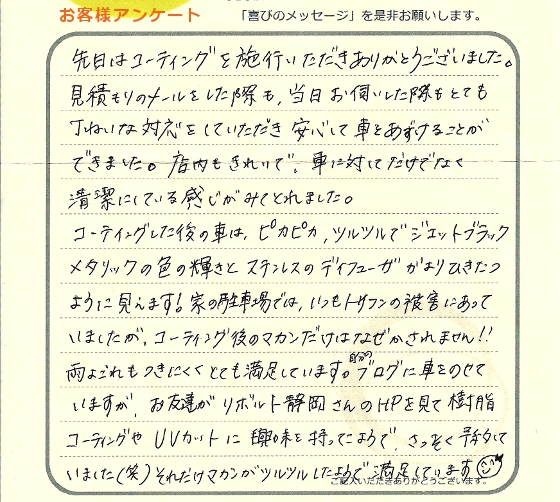 お客様アンケート 「喜びのメッセージ」を是非お願いします。
先日はコーティングを施行いただきありがとうございました。
見積もりのメールをした際も、当日お伺いした際もとても
丁ねいな対応をしていただき安心して車をあずけることが
できました。店内もきれいで、車に対してだけでなく
清潔にしている感じがみてとれました。
コーティングした後の車は、ピカピカ、ツルツルでジェットブラック
メタリックの色の輝きとステンレスのディフューザがよりひきたつ
ように見えます!家の駐車場では、いつもトリフンの被害にあって
いましたが、コーティング後のマカンだけはなぜかされません!!
雨よごれもつきにくくとても満足しています。自分のブログに車をのせて
いますが、お友達がリボルト静岡さんのHPを見て樹脂
コーティングやUVカットに興味を持ってたようで、さっそく
いました(笑)それだけマカンがツルツルしたようで満足しています
ご記入いただきありがとうございます。